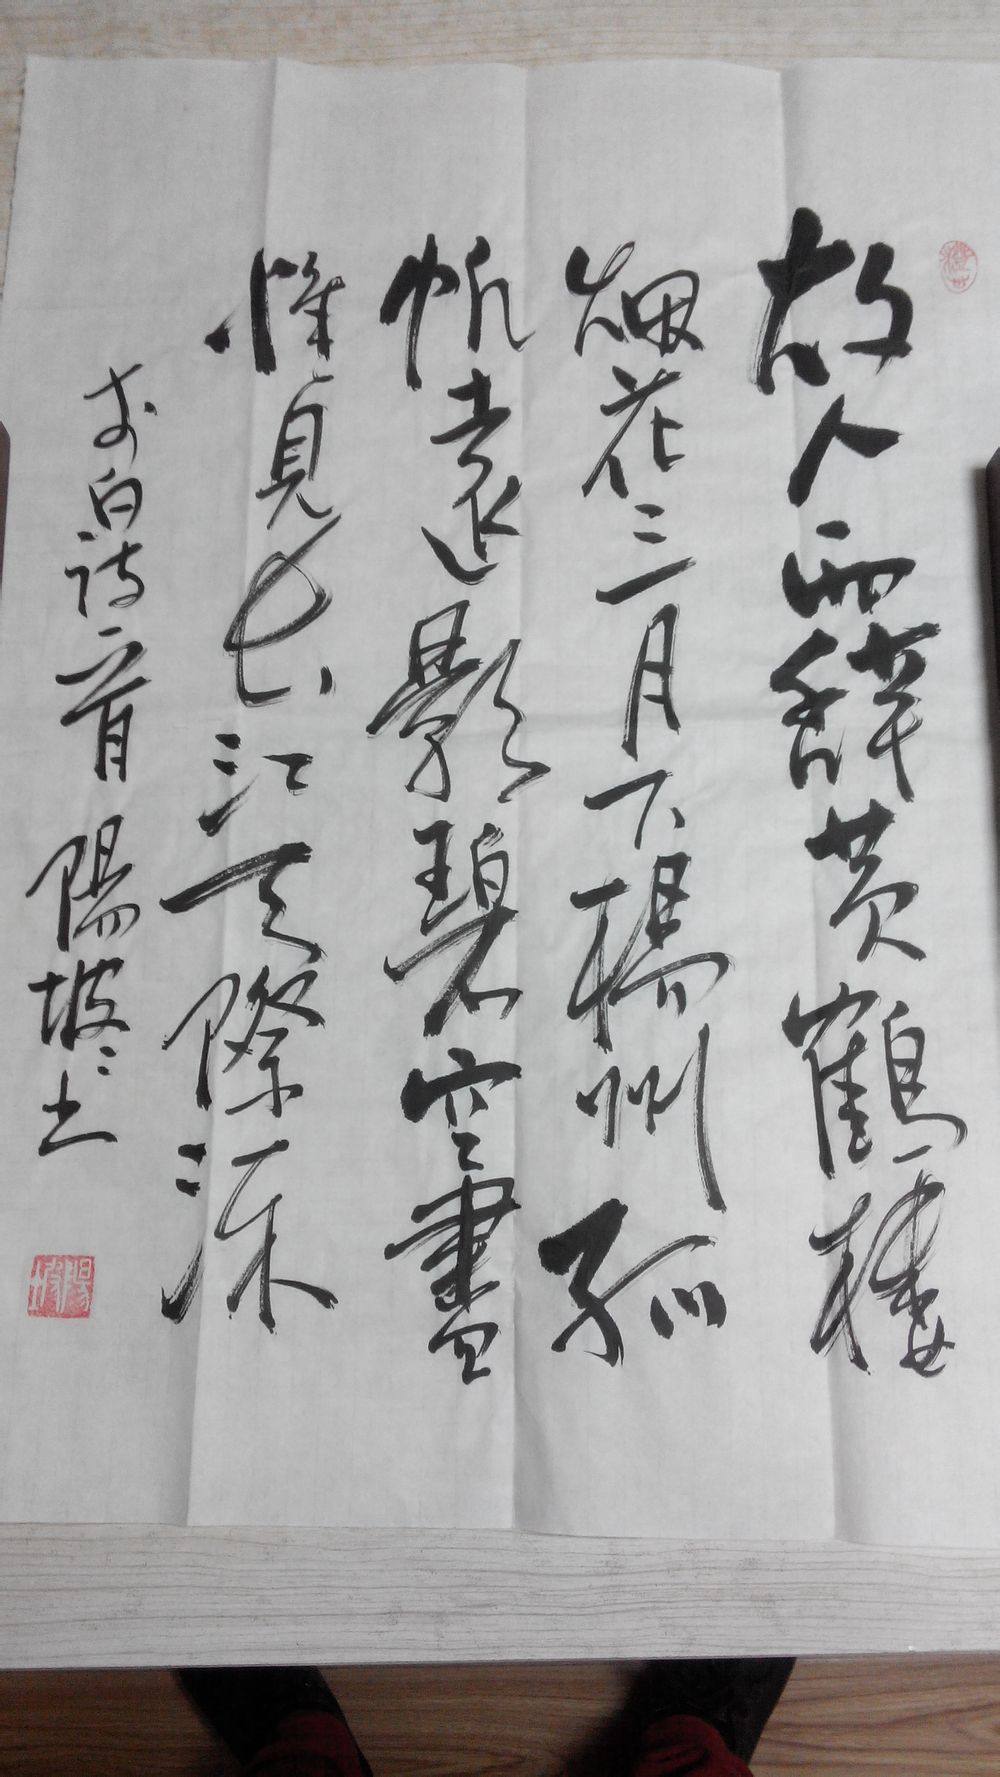 故人西辭黄鶴樓
烟花三月下楊州孤
帆遠影碧空盡
惟見長江天際流
李白詩一首 陽坡